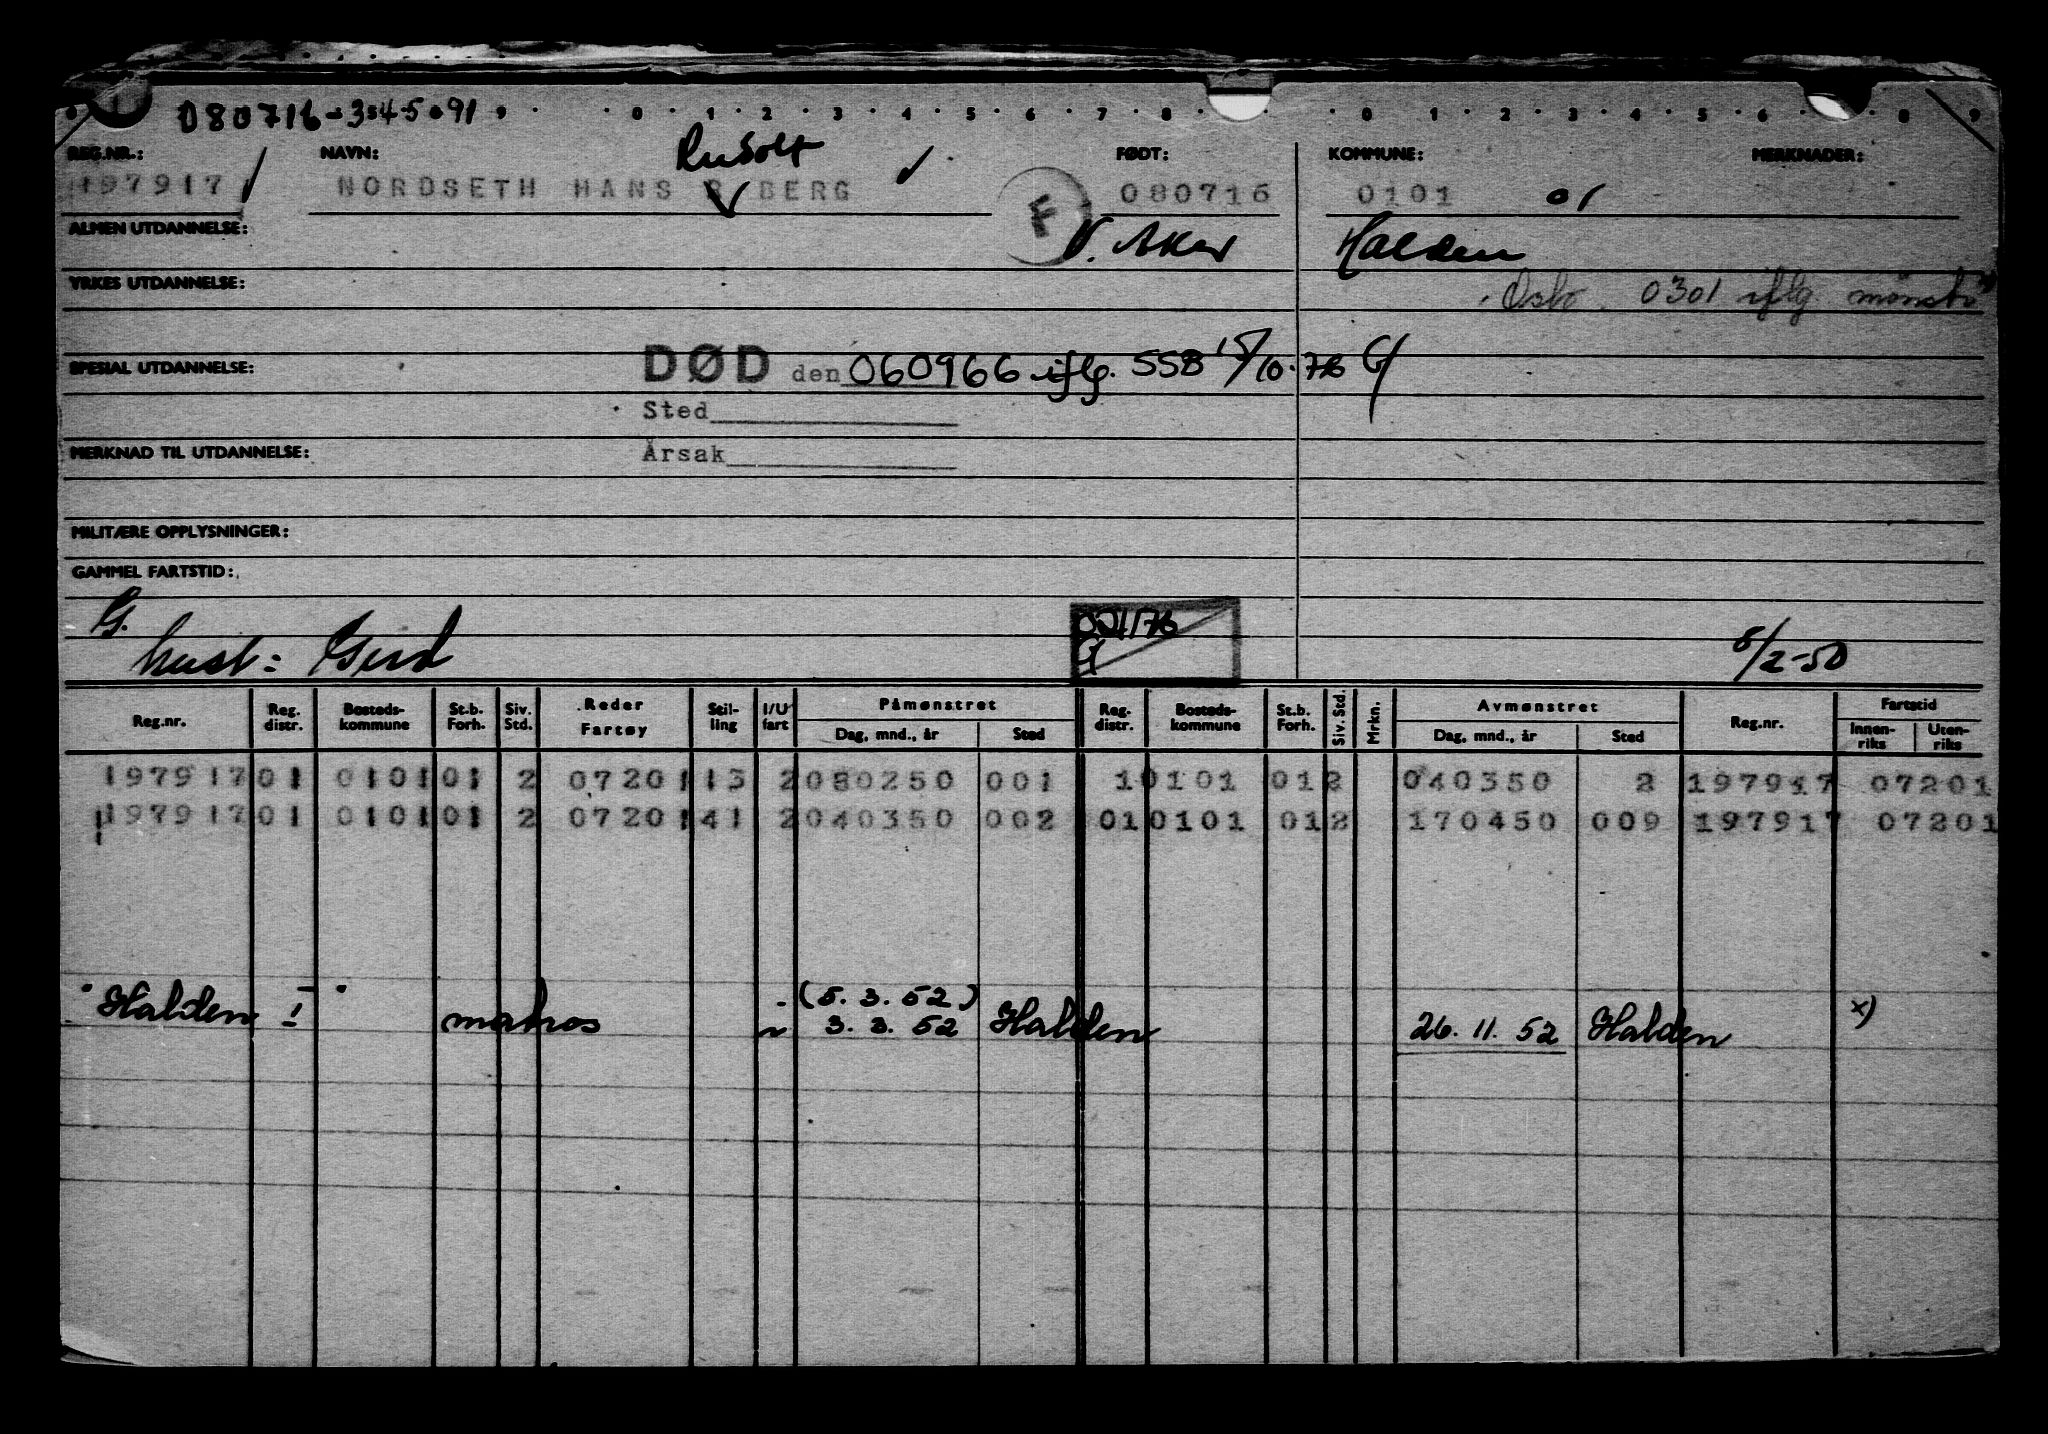 080716-34591 9 0 1 2 3 4 5 6 7 8 0 1 2 3 4 5 6 8 9
REG.NR.: NAVN: Rudolf FØDT: KOMMUNE: MERKNADER:
197917 NORDSETH HANS R BERG 080716 0101 01
ALMEN UTDANNELSE: F V. Aker Halden
YRKES UTDANNELSE: Oslo 0301 iflg. mønstr
SPESIAL UTDANNELSE: DØD den 060966 iflg. SSB 15/10.76 G
Sted
MERKNAD TIL UTDANNELSE: Årsak
MILITÆRE OPPLYSNINGER:
GAMMEL FARTSTID:
G.
hust: Gerd 8/2-50
Reg.nr. Reg. distr. Bosteds-kommune St.b. Forh. Siv. Std. Reder Fartøy Stil-ling I/U fart Påmønstret Dag, mnd., år Sted Reg. distr. Bosteds-kommune St.b. Forh. Siv. Std. Mrkn. Avmønstret Dag, mnd., år Sted Reg.nr. Fartstid Innen-riks Uten-riks
197917 01 0101 01 2 07201 13 2 080250 001 1 0101 01 2 040350 2 197917 07201
197917 01 0101 01 2 07201 41 2 040350 002 01 0101 01 2 170450 009 197917 07201
(5. 3. 52)
"Halden I" matros 3. 3. 52 Halden 26. 11. 52 Halden x)